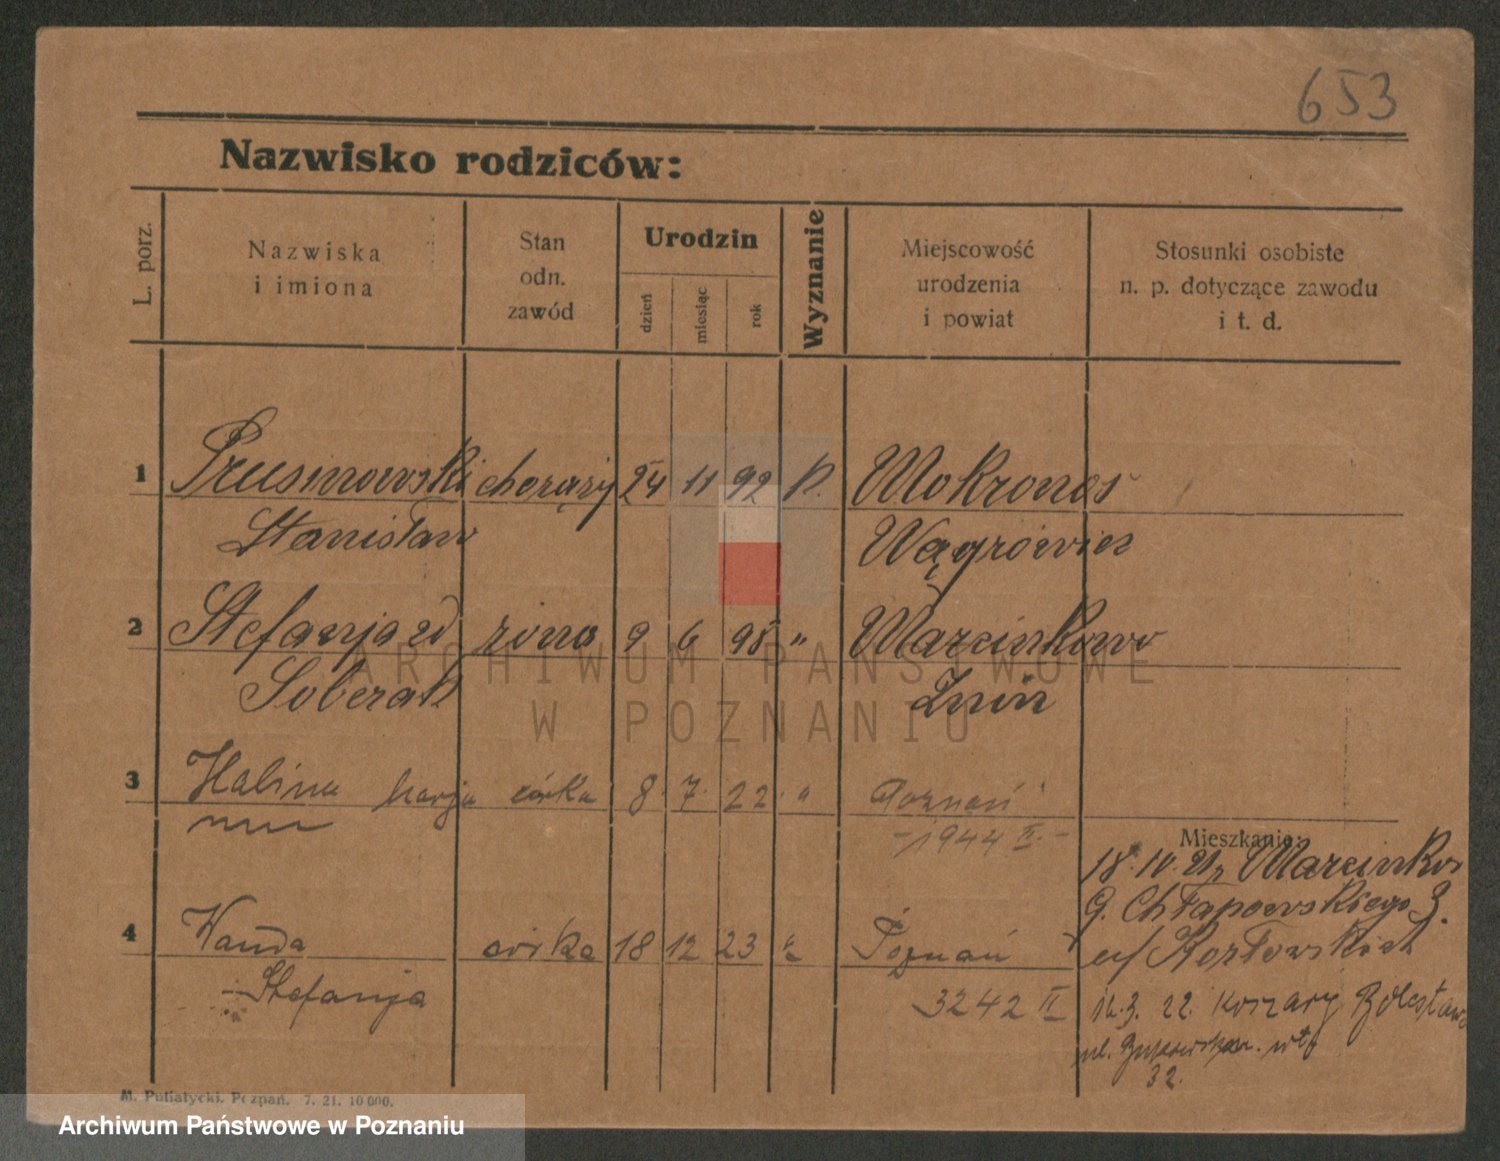 653
Nazwisko rodziców:
L. porz.
Nazwiska
i imiona
Stan
odn.
zawód
Urodzin
dzień
miesiąc
rok
Wyznanie
Miejscowość
urodzenia
i powiat
Stosunki osobiste
n. p. dotyczące zawodu
i t. d.
1 Prusinowski chorąży 24 11 92 k. Mokronos
Stanisław Wągrowiec
2 Stefanja zd żona 9 6 98 " Marcinkowo
Soberak Żnin
3 Halina Marja córka 8. 7. 22. " Poznań
-1944 II.-
Mieszkanie:
18.10.21 z Marcinkow
G. Chłapowskiego 3.
4 Wanda córka 18 12 23 " Poznań u/ Kozłowskich
-Stefanja 3242 II 16.3.22. Koszary Bolesława
ul. wł.
32.
M. Putiatycki. Poznań. 7. 21. 10 000.
ARCHIWUM PAŃSTWOWE
W POZNANIU
Archiwum Państwowe w Poznaniu